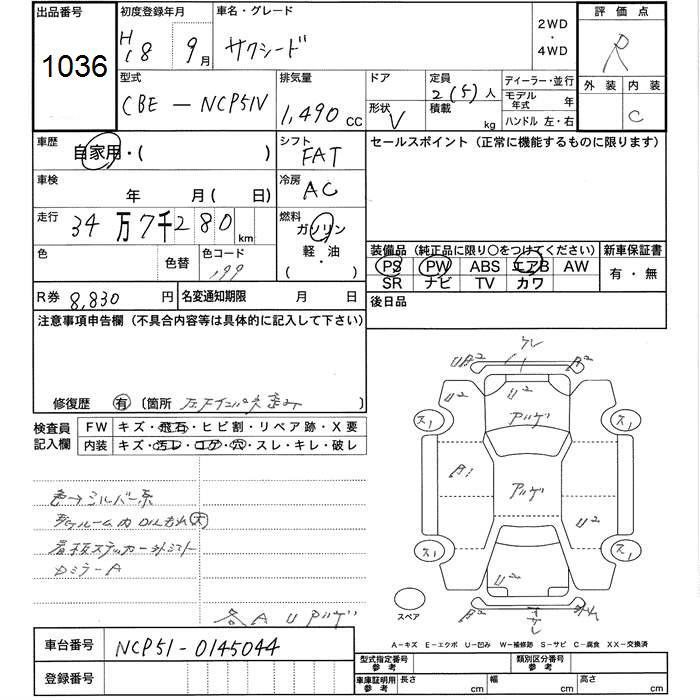 出品番号
1036
初度登録年月
H18 9月
車名・グレード
サクシード
2WD
・
4WD
評価点
R
外装 内装
C
型式
CBE-NCP51V
排気量
1,490 CC
ドア
形状
V
定員
2(5)人
積載
kg
ディーラー・並行
モデル年式 年
ハンドル 左・右
車歴
自家用・( )
シフト
FAT
車検
年 月( 日)
冷房
AC
走行
34万7千280 km
燃料
ガソリン
・
軽・油
( )
色
色替
色コード
199
R券 8,830 円
名変通知期限 月 日
セールスポイント(正常に機能するものに限ります)
装備品(純正品に限り○をつけてください)
PS PW ABS エアB AW
SR ナビ TV カワ
新車保証書
有・無
後日品
注意事項申告欄(不具合内容等は具体的に記入して下さい)
修復歴 有 〔箇所
検査員記入欄
FW キズ・飛石・ヒビ割・リペア跡・X要
内装 キズ・汚レ・コゲ・穴・スレ・キレ・破レ
色→シルバー系
看板ステッカー
ドミラーA
各A U アツゲ
U2
U2
アツゲ
アツゲ
U2
U2
ス1
ス1
ス1
ス1
スペア
A-キズ E-エクボ U-凹み W-補修跡 S-サビ C-腐食 XX-交換済
車台番号 NCP51-0145044
登録番号
型式指定番号 参考
類別区分番号 参考
車庫証明用 参考
長さ cm 幅 cm 高さ cm